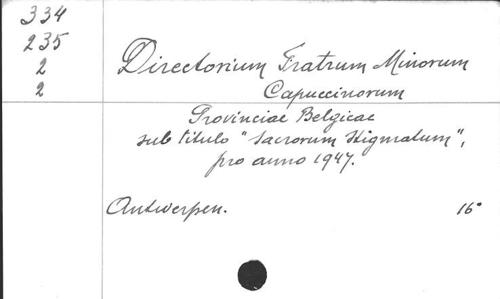 334
235
2
2
Directorium Fratrum Minorum
Capuccinorum
Provinciae Belgicae
sub titulo "Sacrorum Stigmatum",
pro anno 1947.
Antwerpen. 16°